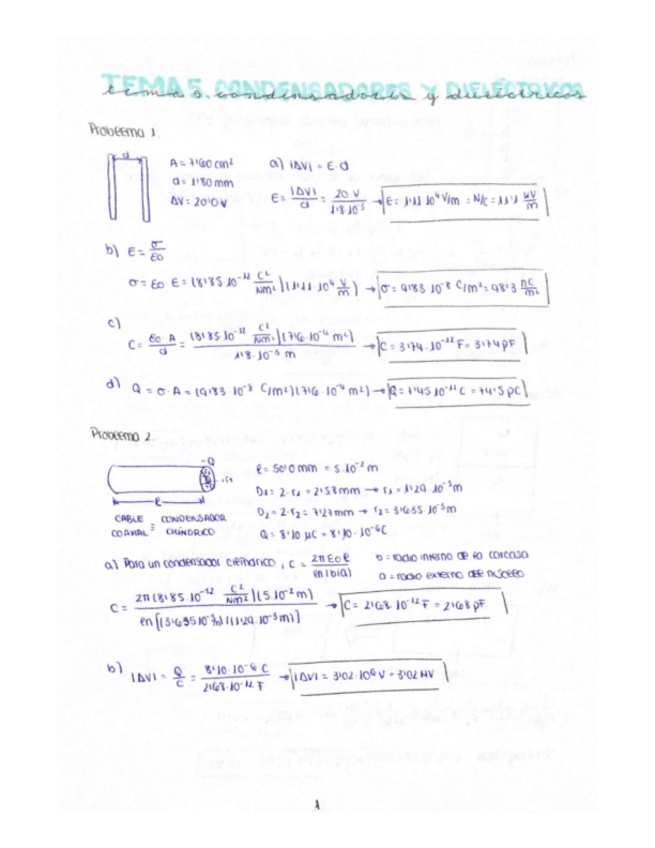 TEMA 5. CONDENSADORES Y DIELÉCTRICOS
tema 5. condensadores y dieléctricos
Problema 1.
d
A = 7'60 cm²
d = 1'80 mm
ΔV = 20'0 V
a) |ΔV| = E·d
E = |ΔV|/d = 20 V/1'8·10⁻³ → E = 1'11·10⁴ V/m = N/C = 11'1 kV/m
b) E = σ/ε0
σ = ε0·E = (8'85·10⁻¹² C²/Nm²)(1'11·10⁴ V/m) → σ = 9'83·10⁻⁸ C/m² = 98'3 nC/m²
c)
C = ε0·A/d = (8'85·10⁻¹² C²/Nm²)(7'6·10⁻⁴ m²)/1'8·10⁻³ m → C = 3'74·10⁻¹² F = 3'74 pF
d) Q = σ·A = (9'83·10⁻⁸ C/m²)(7'6·10⁻⁴ m²) → Q = 7'45·10⁻¹¹ C = 74'5 pC
Problema 2.
-Q
l
CABLE COAXIAL ≡ CONDENSADOR CILÍNDRICO
l = 50'0 mm = 5·10⁻² m
D1 = 2·r1 = 2'58 mm → r1 = 1'29·10⁻³ m
D2 = 2·r2 = 7'27 mm → r2 = 3'635·10⁻³ m
Q = 8'10 μC = 8'10·10⁻⁶ C
a) Para un condensador cilíndrico, C = 2πε0l/ln(b/a)
b = radio interno de la carcasa
a = radio externo del núcleo
C = 2π(8'85·10⁻¹² C²/Nm²)(5·10⁻² m)/ln[(3'635·10⁻³m)/(1'29·10⁻³m)] → C = 2'68·10⁻¹² F = 2'68 pF
b) |ΔV| = Q/C = 8'10·10⁻⁶ C/2'68·10⁻¹² F → |ΔV| = 3'02·10⁶ V = 3'02 MV
1